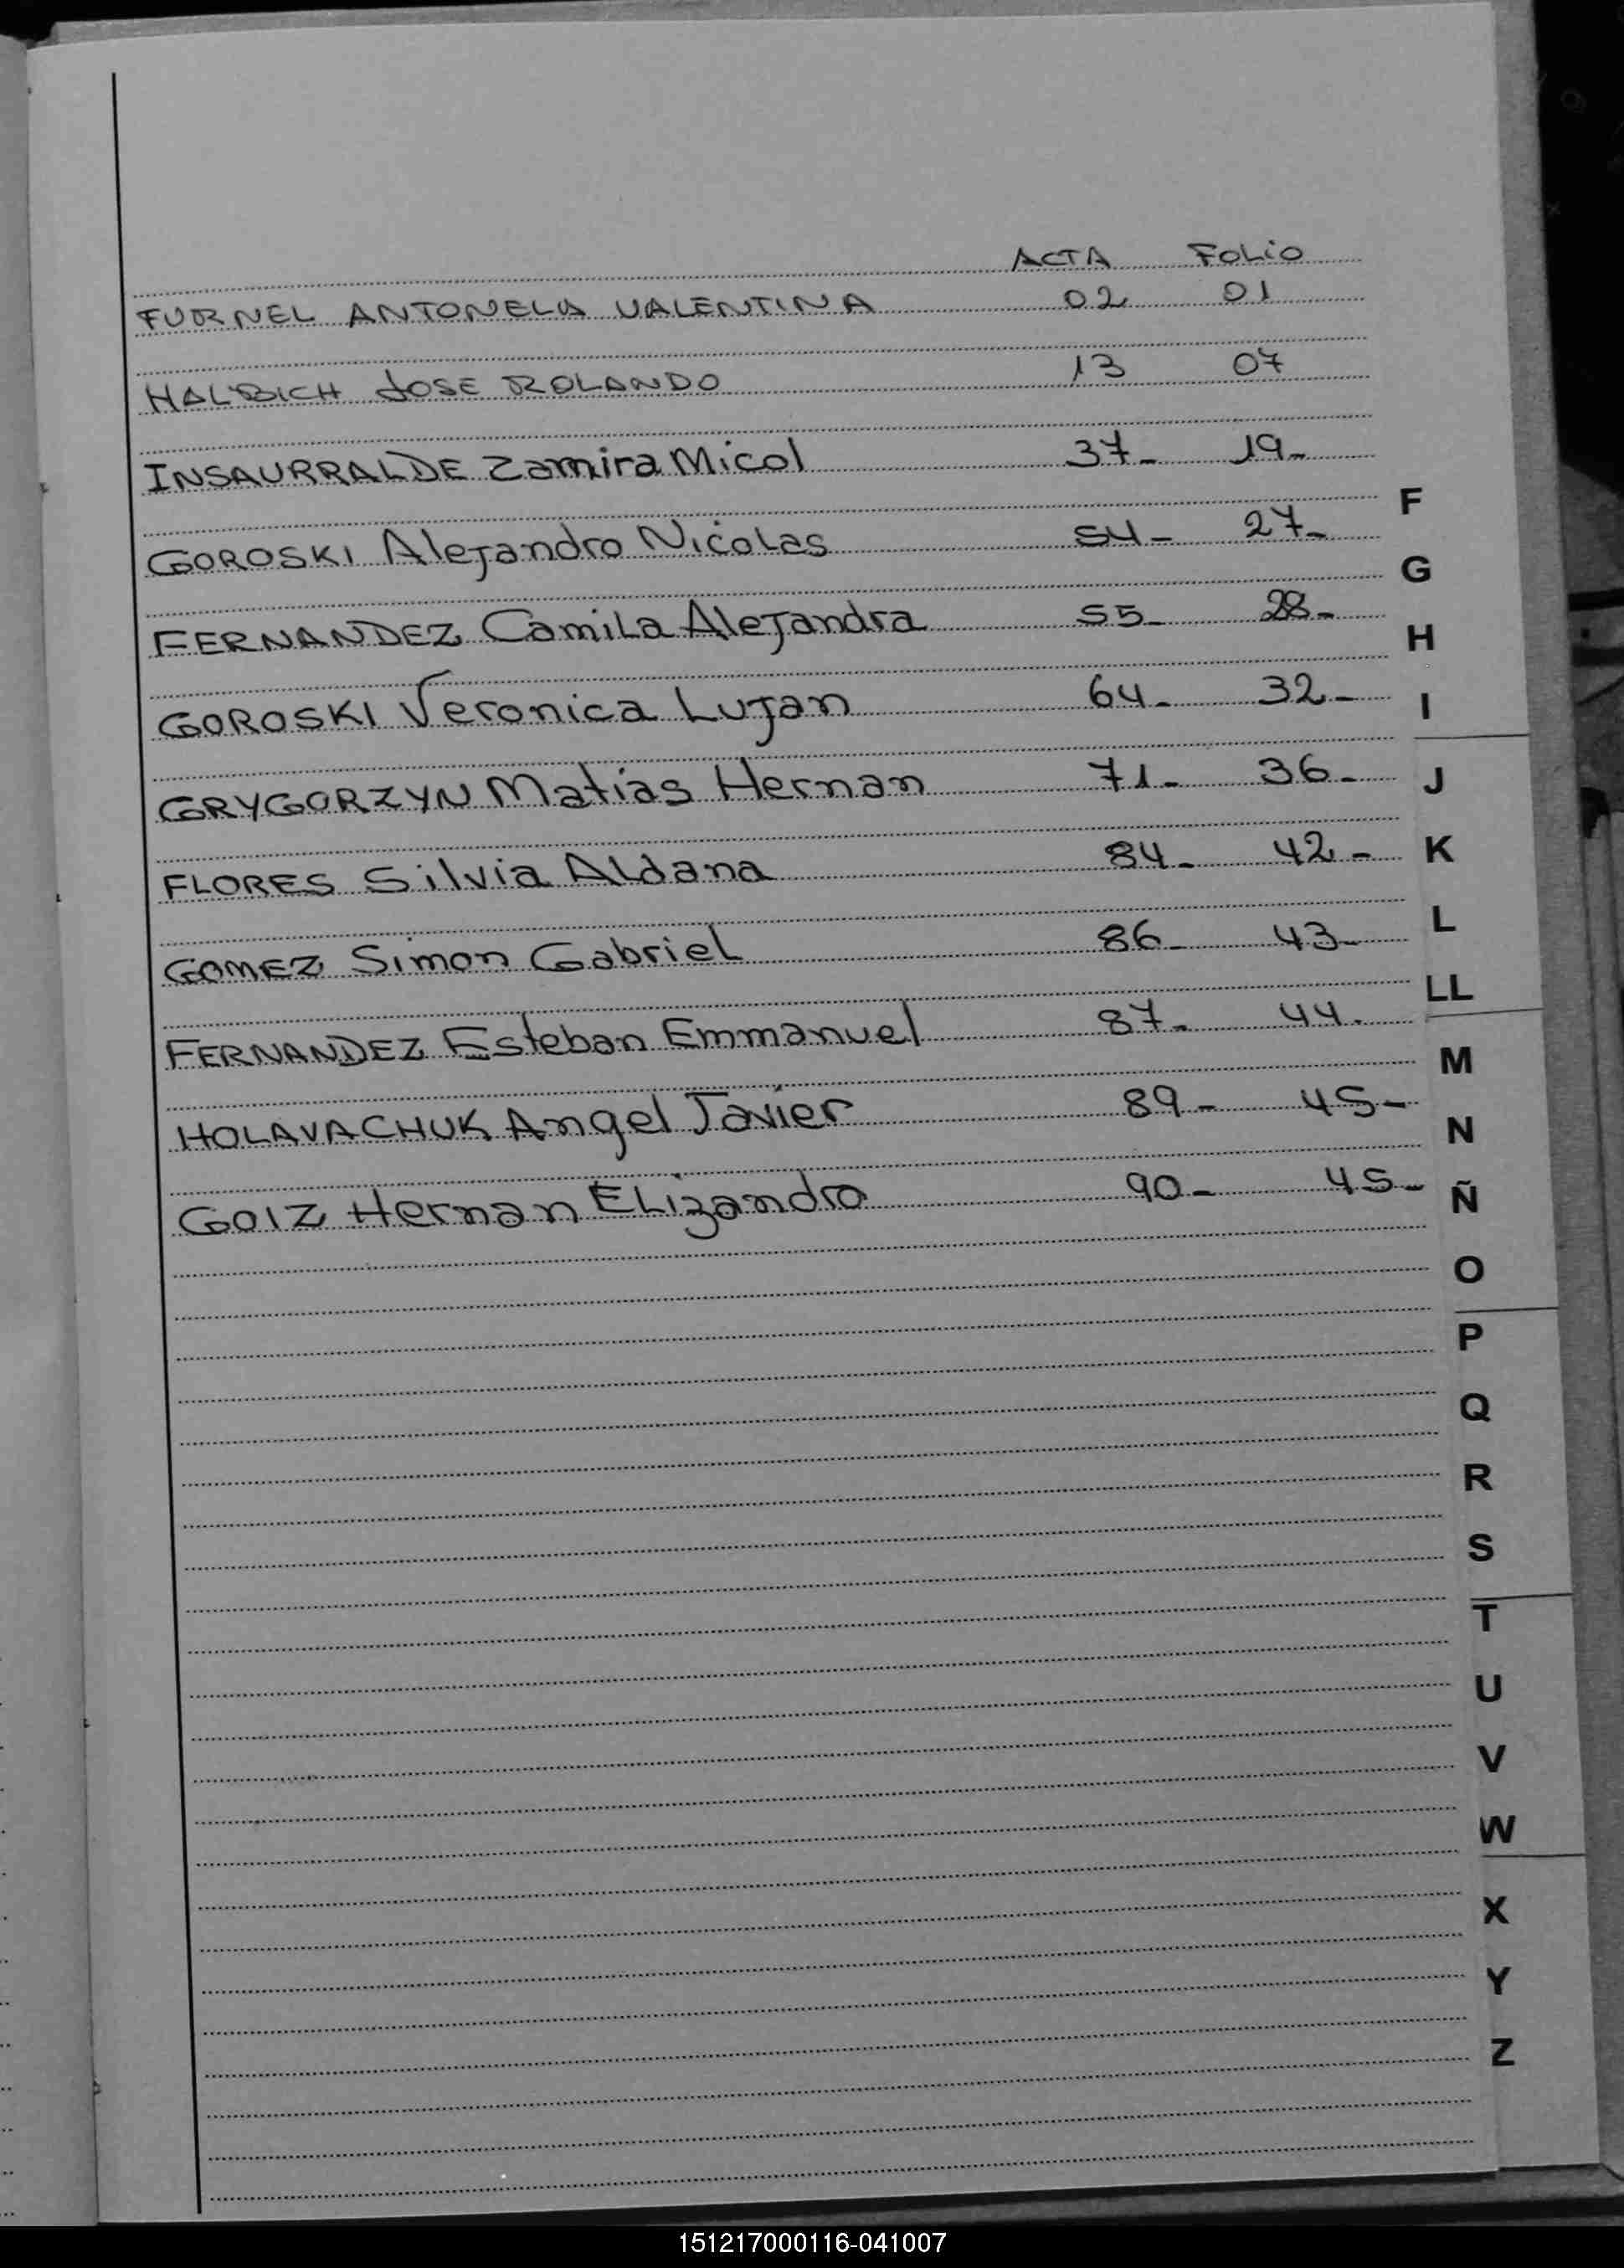 ACTA FOLIO
FURNEL ANTONELA VALENTINA 02 01
HALBICH JOSE ROLANDO 13 07
INSAURRALDE Zamira Micol 37- 19-
GOROSKI Alejandro Nicolas 54- 27-
FERNANDEZ Camila Alejandra 55- 28-
GOROSKI Veronica Lujan 64- 32-
GRYGORZYN Matias Hernan 71- 36-
FLORES Silvia Aldana 84- 42-
GOMEZ Simon Gabriel 86- 43-
FERNANDEZ Esteban Emmanuel 87- 44.
HOLAVACHUK Angel Javier 89- 45-
GOIZ Hernan Elizandro 90- 45-
F
G
H
I
J
K
L
LL
M
N
Ñ
O
P
Q
R
S
T
U
V
W
X
Y
Z
151217000116-041007